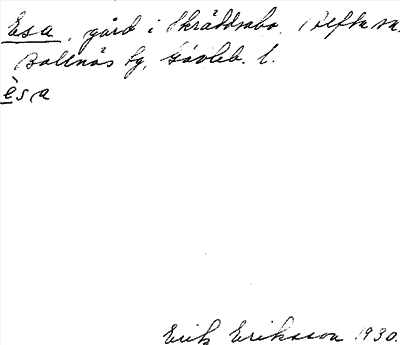 Esa, gård i Skräddrabo, Alfta sn,
Bollnäs tg, Gävleb. l.
èsa
Erik Eriksson 1930.